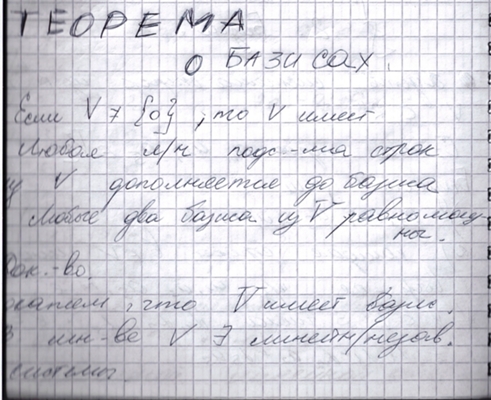 ТЕОРЕМА
О БАЗИСАХ.
Если V ≠ {0}, то V имеет
Любая л/н подс-ма строк
из V дополняется до базиса
Любые два базиса из V равномощ-
ны.
Док.-во.
что V имеет базис.
В мн-ве V ∃ линейн/незав.
системы.